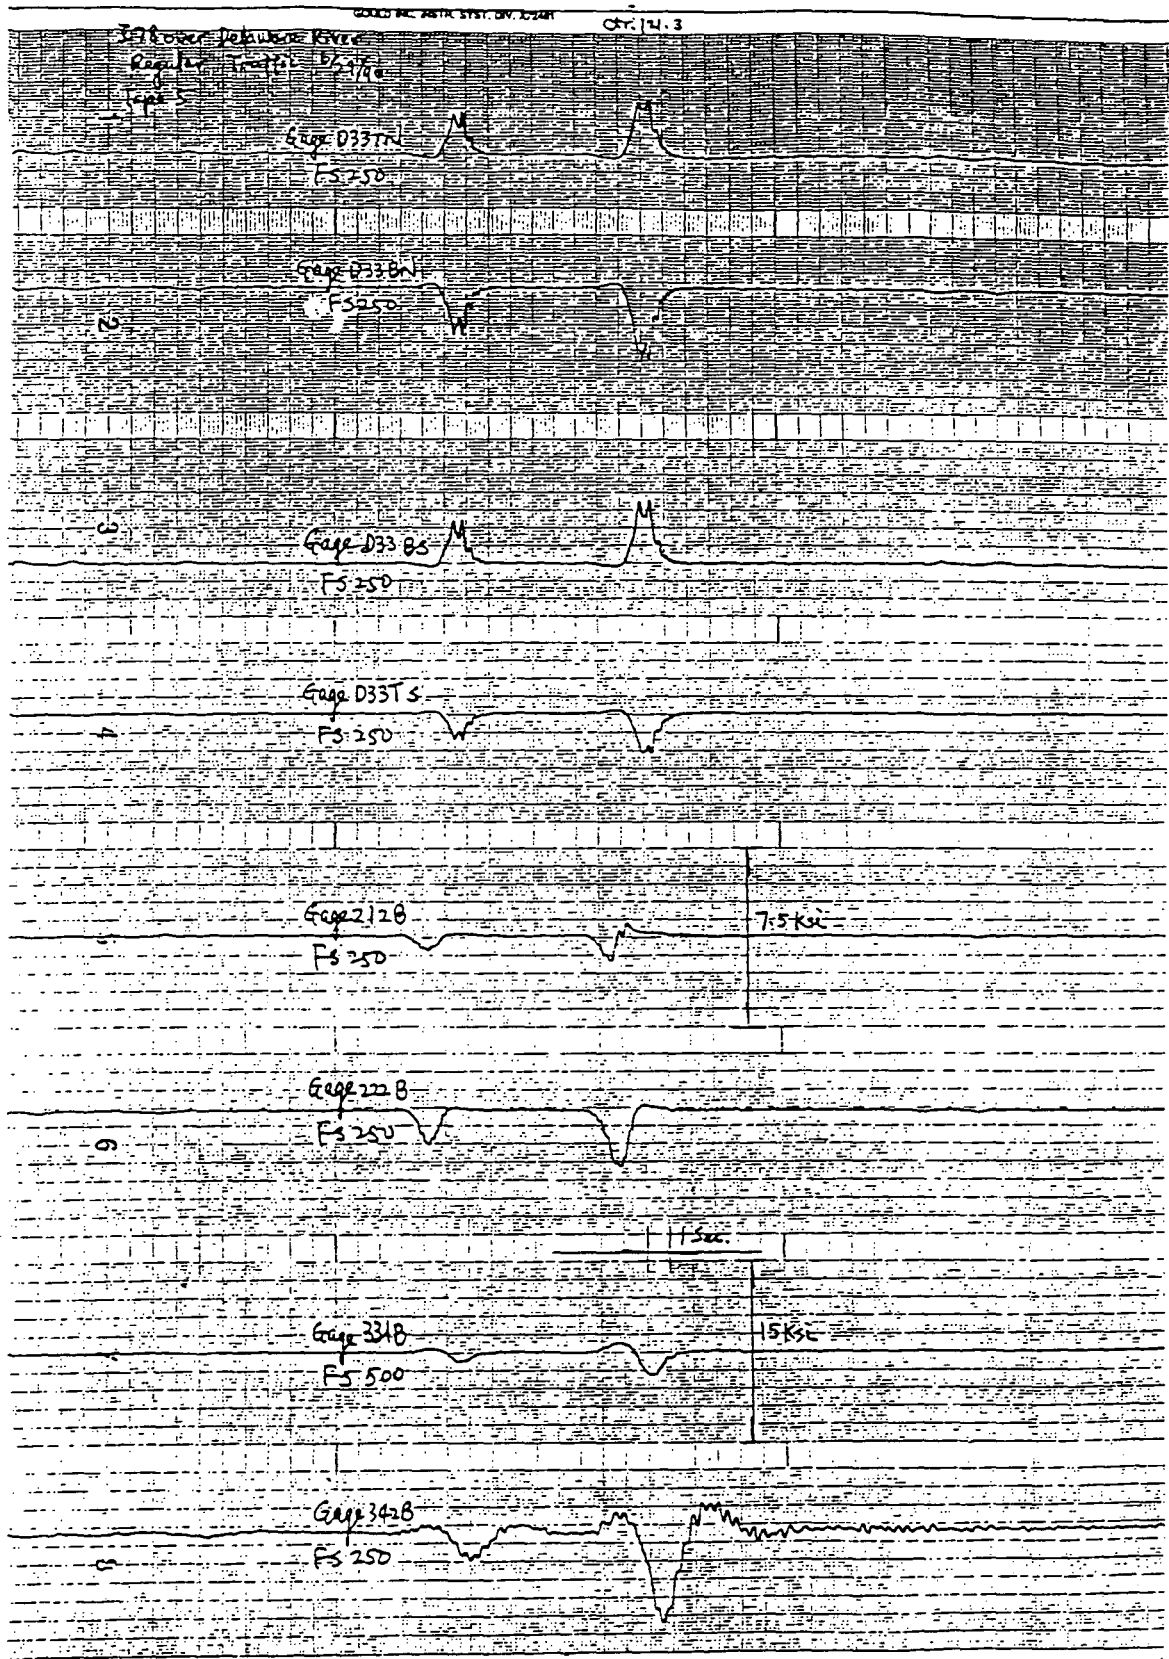 GOULD INC.
Ctr. 121.3
378 over Delaware River
Regular Traffic
Tape 5
1
Gage D33TN
FS 250
Gage D33BN
FS 250
2
3
Gage D33BS
FS 250
Gage D33TS
FS 250
4
Gage 212B
FS 250
5
7.5 Ksi
Gage 222B
FS 250
6
1 Sec.
Gage 334B
FS 500
7
15 Ksi
Gage 342B
FS 250
8